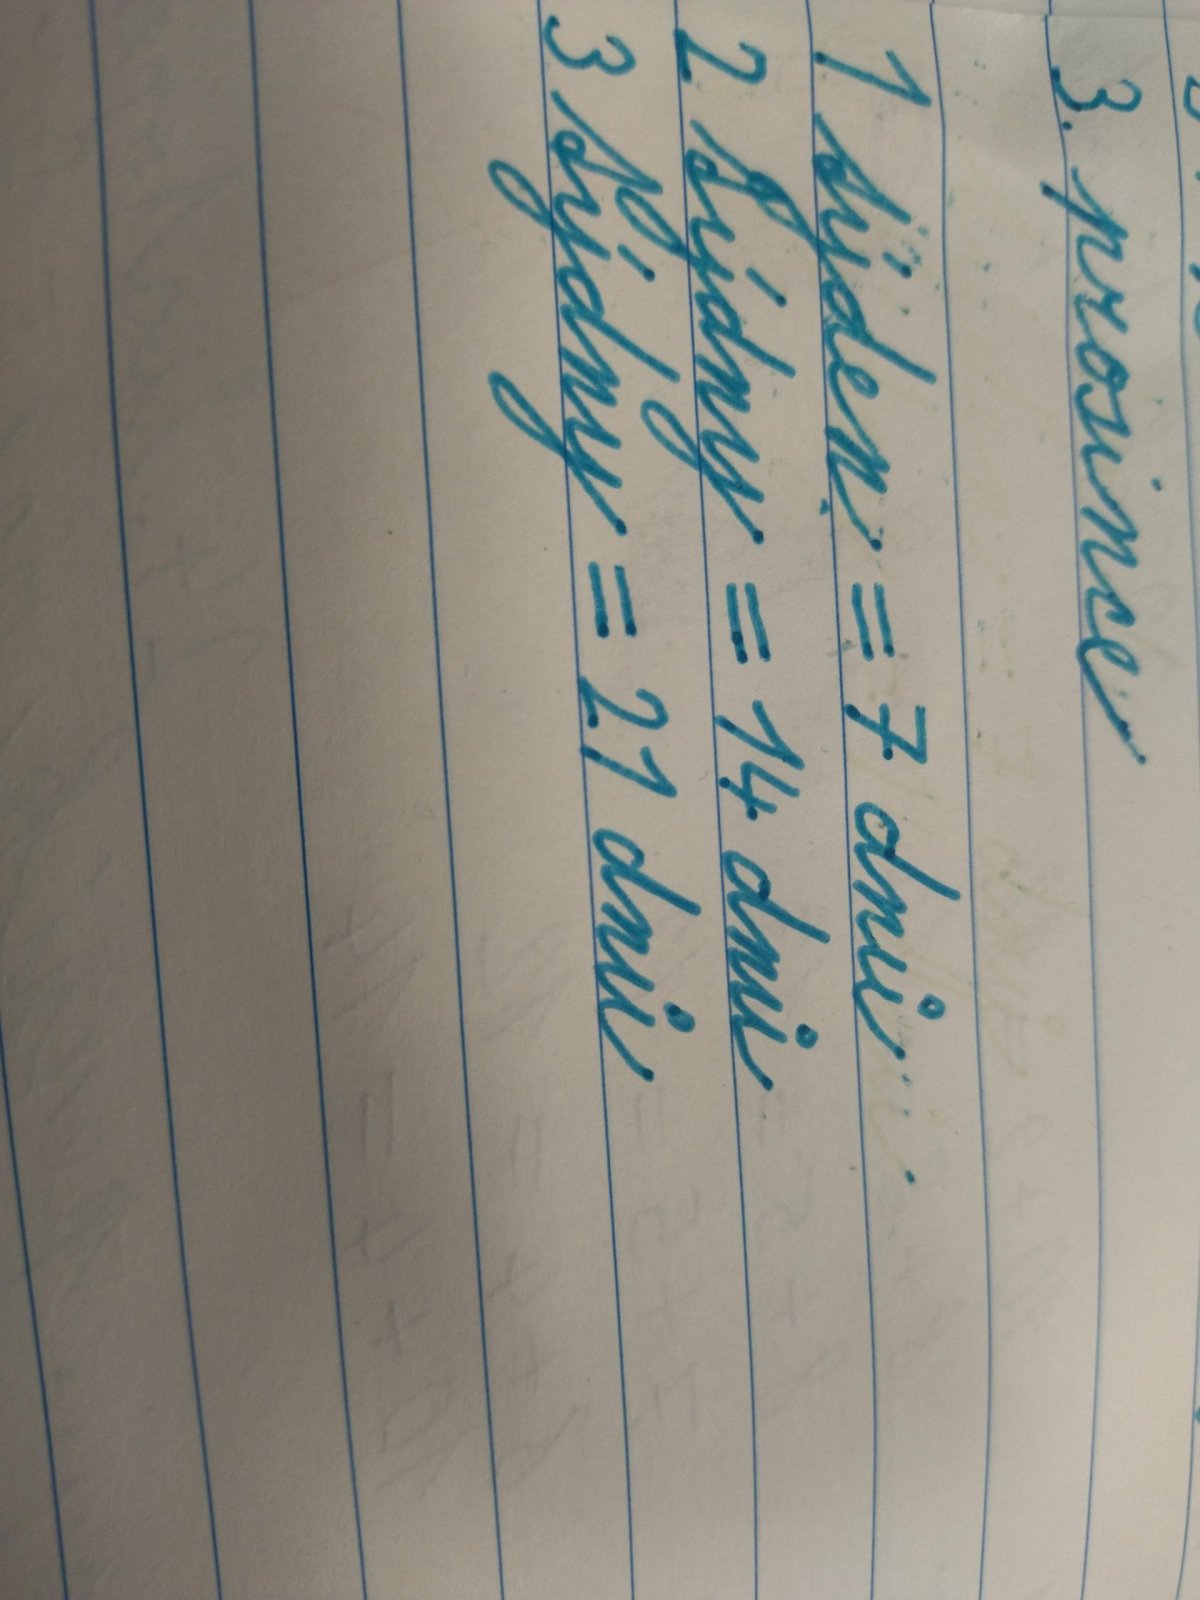 3. prosince
1 týden = 7 dni
2 týdny = 14 dni
3 týdny = 21 dni